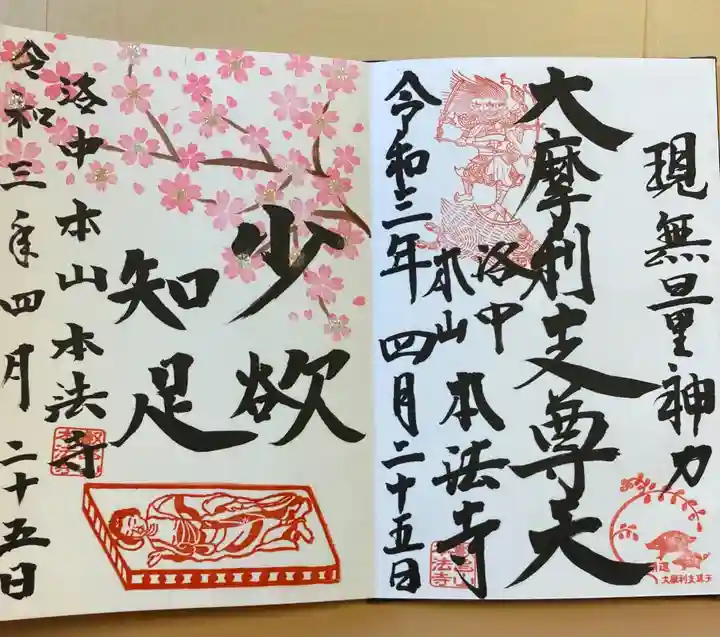 現無量神力
大摩利支尊天
洛中
本山
本法寺
令和三年四月二十五日
大摩利支尊天
少欲
知足
洛中 本山 本法寺
令和三年四月二十五日